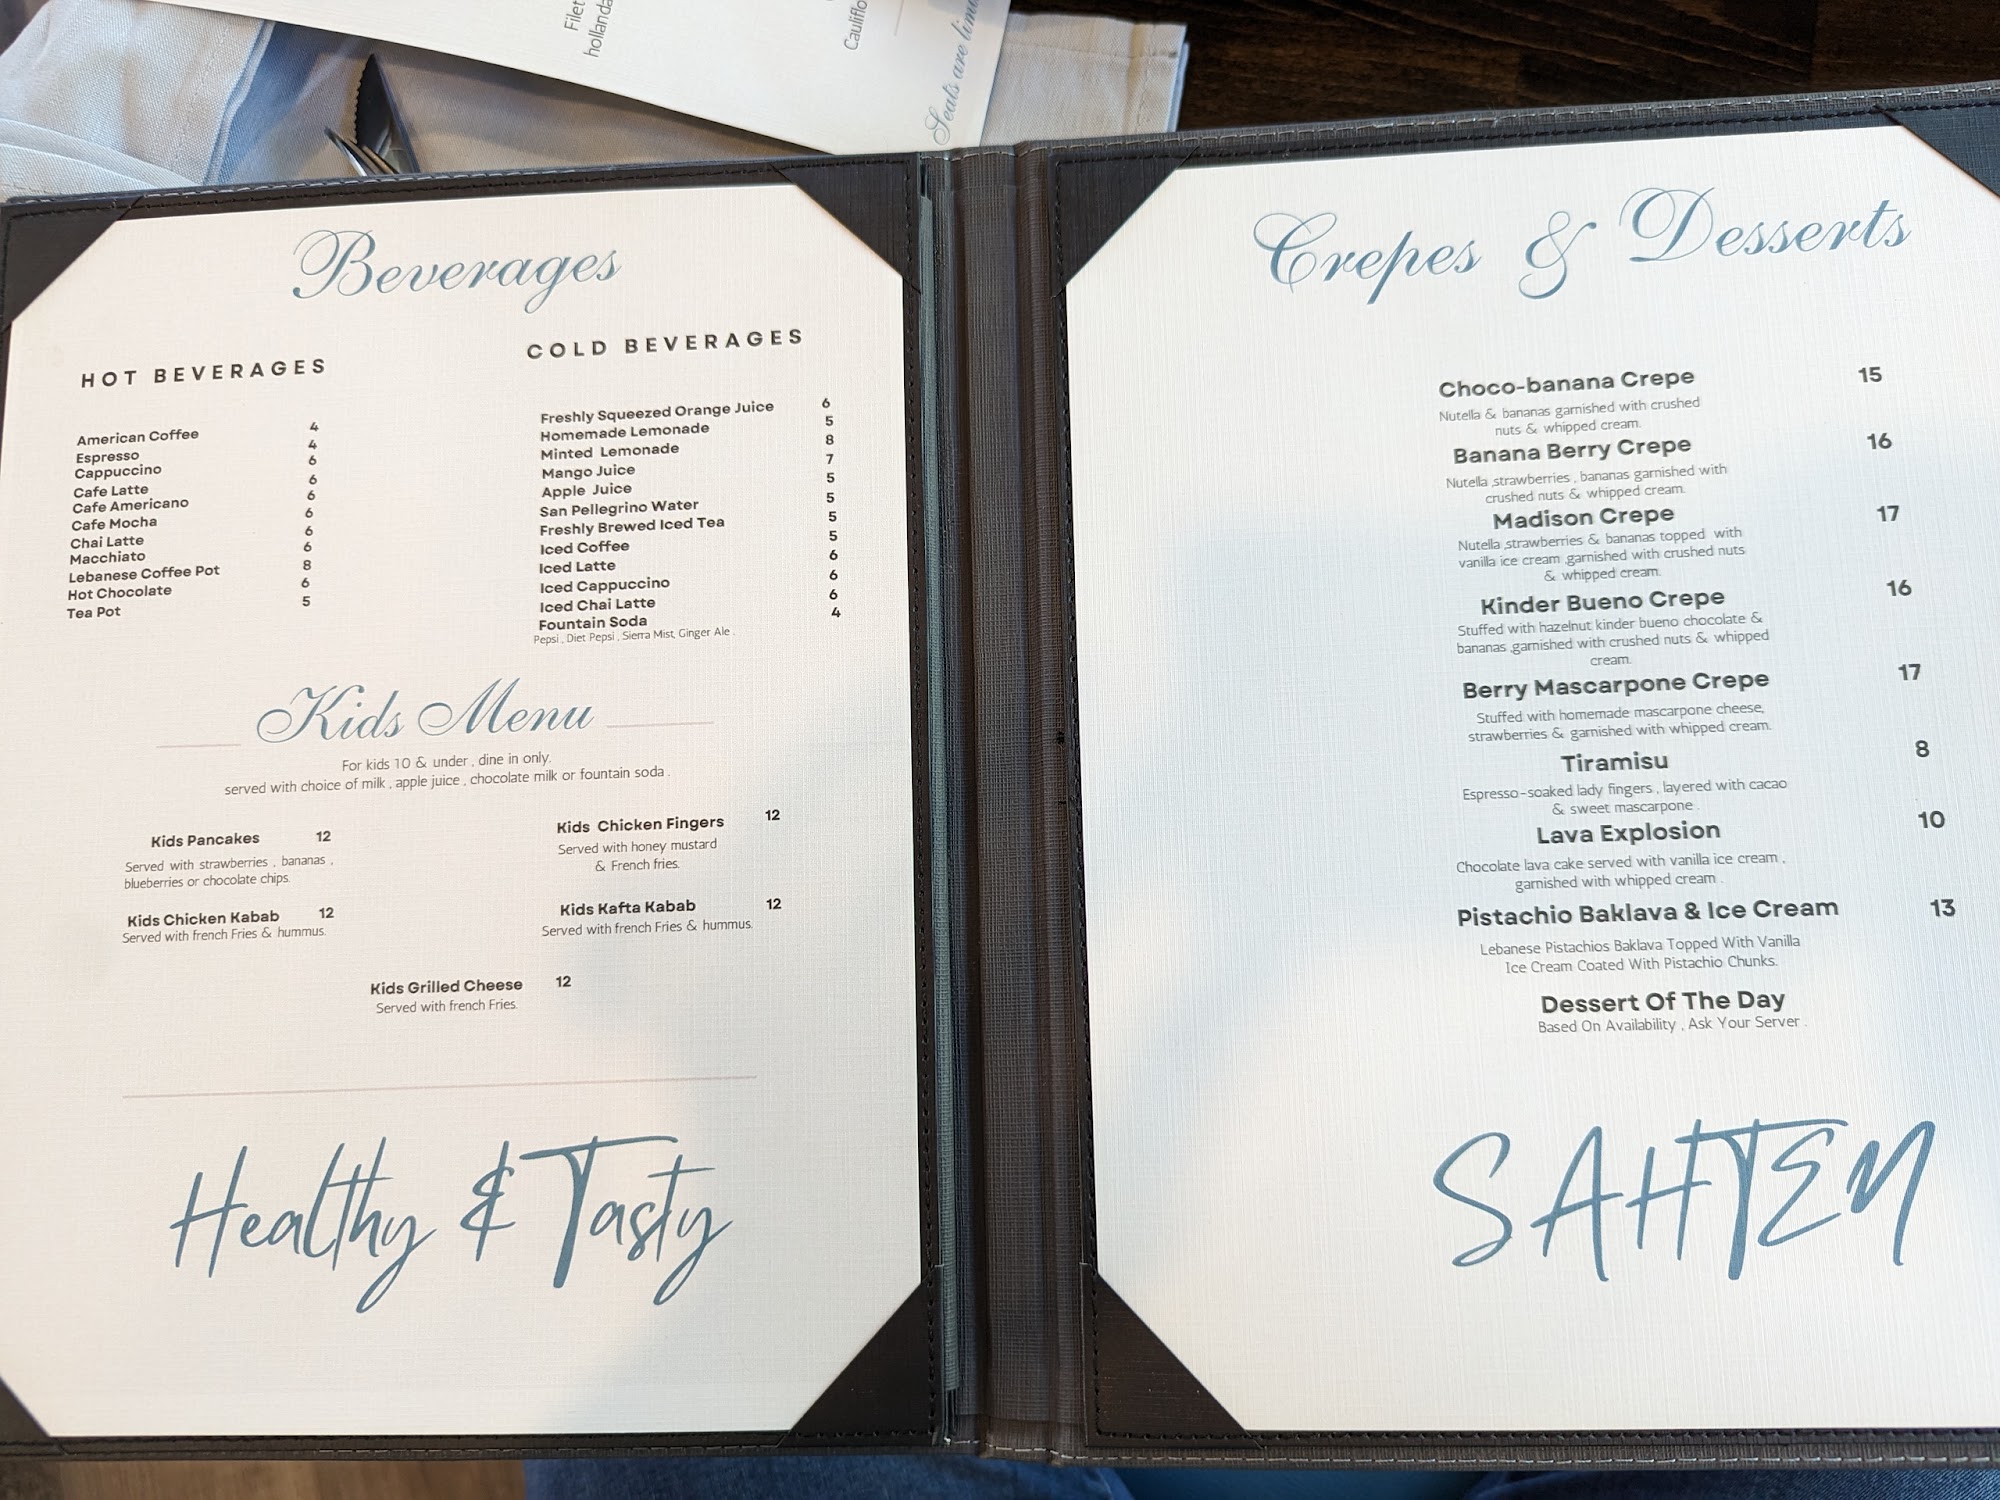 Filet
hollanda
Cauliflo
Seats are lim
Beverages
HOT BEVERAGES
American Coffee 4
Espresso 4
Cappuccino 6
Cafe Latte 6
Cafe Americano 6
Cafe Mocha 6
Chai Latte 6
Macchiato 6
Lebanese Coffee Pot 8
Hot Chocolate 6
Tea Pot 5
COLD BEVERAGES
Freshly Squeezed Orange Juice 6
Homemade Lemonade 5
Minted Lemonade 8
Mango Juice 7
Apple Juice 5
San Pellegrino Water 5
Freshly Brewed Iced Tea 5
Iced Coffee 5
Iced Latte 6
Iced Cappuccino 6
Iced Chai Latte 6
Fountain Soda 4
Pepsi , Diet Pepsi , Sierra Mist, Ginger Ale .
Kids Menu
For kids 10 & under , dine in only.
served with choice of milk , apple juice , chocolate milk or fountain soda .
Kids Pancakes 12
Served with strawberries , bananas ,
blueberries or chocolate chips.
Kids Chicken Fingers 12
Served with honey mustard
& French fries.
Kids Chicken Kabab 12
Served with french Fries & hummus.
Kids Kafta Kabab 12
Served with french Fries & hummus.
Kids Grilled Cheese 12
Served with french Fries.
Healthy & Tasty
Crepes & Desserts
Choco-banana Crepe 15
Nutella & bananas garnished with crushed
nuts & whipped cream.
Banana Berry Crepe 16
Nutella ,strawberries , bananas garnished with
crushed nuts & whipped cream.
Madison Crepe 17
Nutella ,strawberries & bananas topped with
vanilla ice cream ,garnished with crushed nuts
& whipped cream.
Kinder Bueno Crepe 16
Stuffed with hazelnut kinder bueno chocolate &
bananas ,garnished with crushed nuts & whipped
cream.
Berry Mascarpone Crepe 17
Stuffed with homemade mascarpone cheese,
strawberries & garnished with whipped cream.
Tiramisu 8
Espresso-soaked lady fingers , layered with cacao
& sweet mascarpone .
Lava Explosion 10
Chocolate lava cake served with vanilla ice cream ,
garnished with whipped cream .
Pistachio Baklava & Ice Cream 13
Lebanese Pistachios Baklava Topped With Vanilla
Ice Cream Coated With Pistachio Chunks.
Dessert Of The Day
Based On Availability , Ask Your Server .
SAHTEN